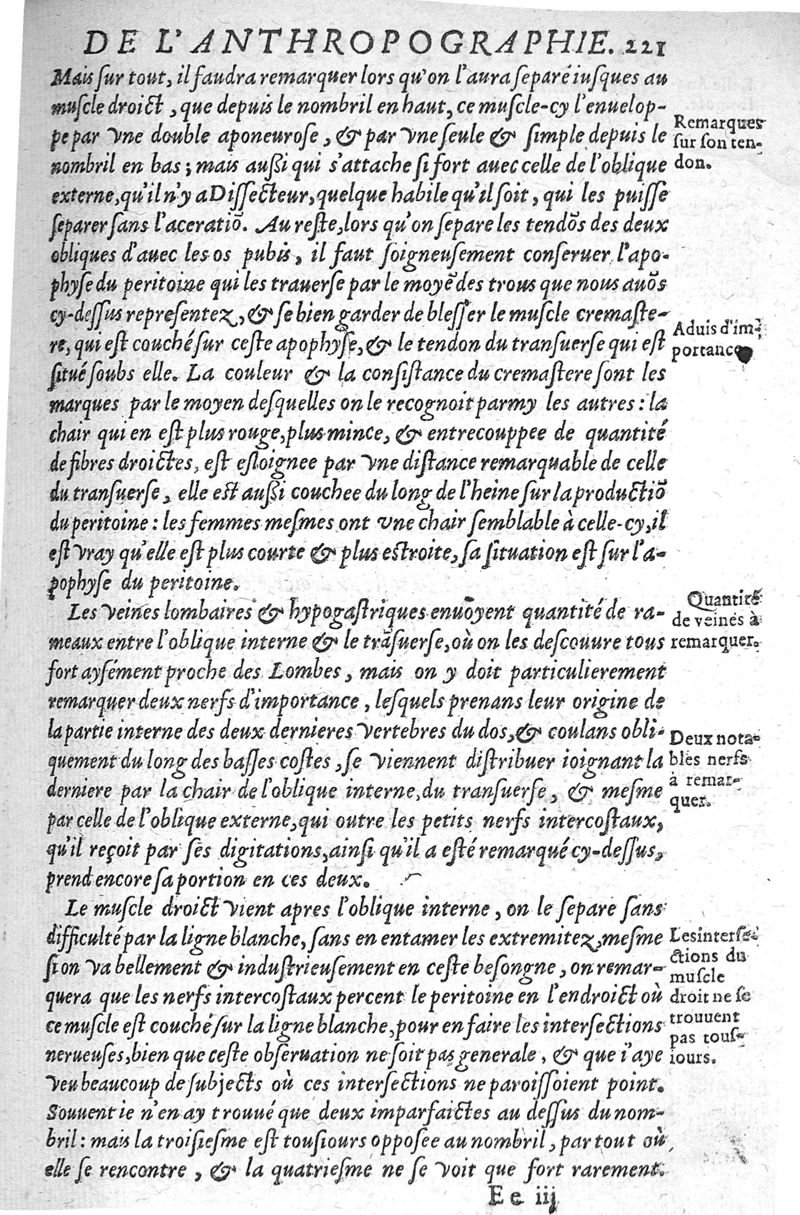 DE L'ANTHROPOGRAPHIE. 221
Mais ſur tout, il faudra remarquer lors qu'on l'aura ſeparé iuſques au
muſcle droict, que depuis le nombril en haut, ce muſcle-cy l'enuelop-
pe par vne double aponeuroſe, & par vne ſeule & ſimple depuis le
nombril en bas; mais auſſi qui s'attache ſi fort auec celle de l'oblique
externe, qu'il n'y a Diſſecteur, quelque habile qu'il ſoit, qui les puiſſe
ſeparer ſans l'aceratiõ. Au reſte, lors qu'on ſepare les tendõs des deux
obliques d'auec les os pubis, il faut ſoigneuſement conſeruer l'apo-
phyſe du peritoine qui les trauerſe par le moyẽ des trous que nous auõs
cy-deſſus repreſentez, & ſe bien garder de bleſſer le muſcle cremaſte-
re, qui eſt couché ſur ceſte apophyſe, & le tendon du tranſuerſe qui eſt
ſitué ſoubs elle. La couleur & la conſiſtance du cremaſtere ſont les
marques par le moyen deſquelles on le recognoit parmy les autres: la
chair qui en eſt plus rouge, plus mince, & entrecouppee de quantité
de fibres droictes, eſt eſloignee par vne diſtance remarquable de celle
du tranſuerſe, elle eſt auſſi couchee du long de l'heine ſur la productiõ
du peritoine: les femmes meſmes ont vne chair ſemblable à celle-cy, il
eſt vray qu'elle eſt plus courte & plus eſtroite, ſa ſituation eſt ſur l'a-
pophyſe du peritoine.
Les veines lombaires & hypogaſtriques enuoyent quantité de ra-
meaux entre l'oblique interne & le trãſuerſe, où on les deſcouure tous
fort ayſément proche des Lombes, mais on y doit particulierement
remarquer deux nerfs d'importance, leſquels prenans leur origine de
la partie interne des deux dernieres vertebres du dos, & coulans obli-
quement du long des baſſes coſtes, ſe viennent diſtribuer ioignant la
derniere par la chair de l'oblique interne, du tranſuerſe, & meſme
par celle de l'oblique externe, qui outre les petits nerfs intercoſtaux,
qu'il reçoit par ſes digitations, ainſi qu'il a eſté remarqué cy-deſſus,
prend encore ſa portion en ces deux.
Le muſcle droict vient apres l'oblique interne, on le ſepare ſans
difficulté par la ligne blanche, ſans en entamer les extremitez, meſme
ſi on va bellement & induſtrieuſement en ceſte beſongne, on remar-
quera que les nerfs intercoſtaux percent le peritoine en l'endroict où
ce muſcle eſt couché ſur la ligne blanche, pour en faire les interſections
nerueuſes, bien que ceſte obſeruation ne ſoit pas generale, & que i'aye
veu beaucoup de ſubjects où ces interſections ne paroiſſoient point.
Souuent ie n'en ay trouué que deux imparfaictes au deſſus du nom-
bril: mais la troiſieſme eſt touſiours oppoſee au nombril, par tout où
elle ſe rencontre, & la quatrieſme ne ſe voit que fort rarement.
E e iij
Remarques
ſur ſon ten-
don.
Aduis d'im-
portance
Quantité
de veines à
remarquer.
Deux nota-
bles nerfs
à remar-
quer.
Les interſe-
ctions du
muſcle
droit ne ſe
trouuent
pas touſ-
iours.